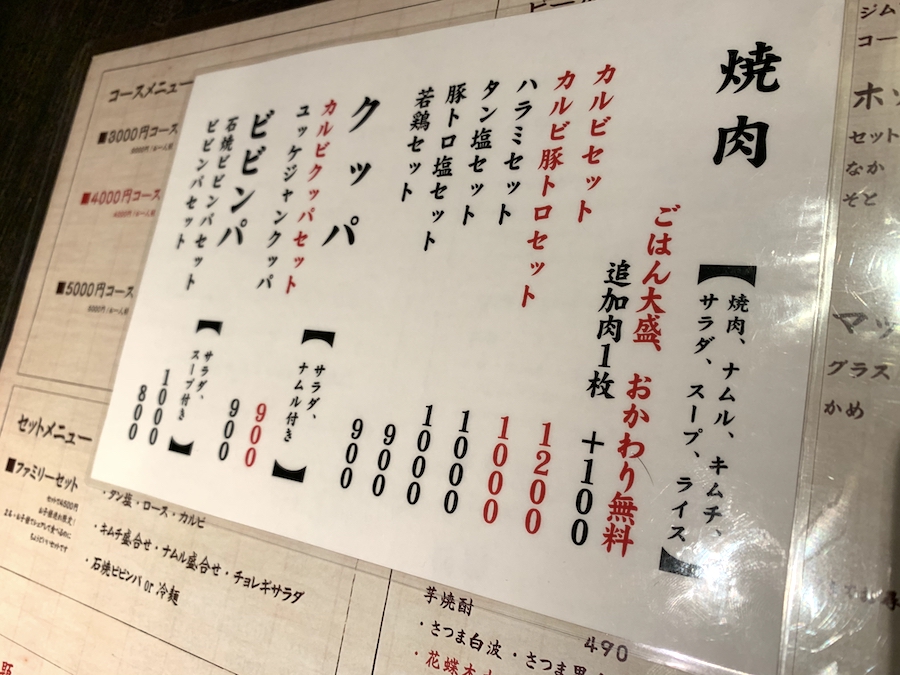 焼肉
【焼肉、ナムル、キムチ、
サラダ、スープ、ライス】
ごはん大盛、おかわり無料
追加肉1枚 +100
カルビセット 1200
カルビ豚トロセット 1000
ハラミセット 1000
タン塩セット 1000
豚トロ塩セット 900
若鶏セット 900
クッパ
【サラダ、
ナムル付き】
カルビクッパセット 900
ユッケジャンクッパ 900
ビビンパ
【サラダ、
スープ付き】
石焼ビビンパセット 1000
ビビンパセット 800
コースメニュー
■3000円コース
■4000円コース
■5000円コース
セットメニュー
■ファミリーセット
・タン塩・ロース・カルビ
・キムチ盛合せ・ナムル盛合せ・チョレギサラダ
・石焼ビビンパ or 冷麺
芋焼酎 490
・さつま白波・さつま
・花蝶木
ジム
コー
ホッ
セット
なか
そと
マッ
グラス
かめ